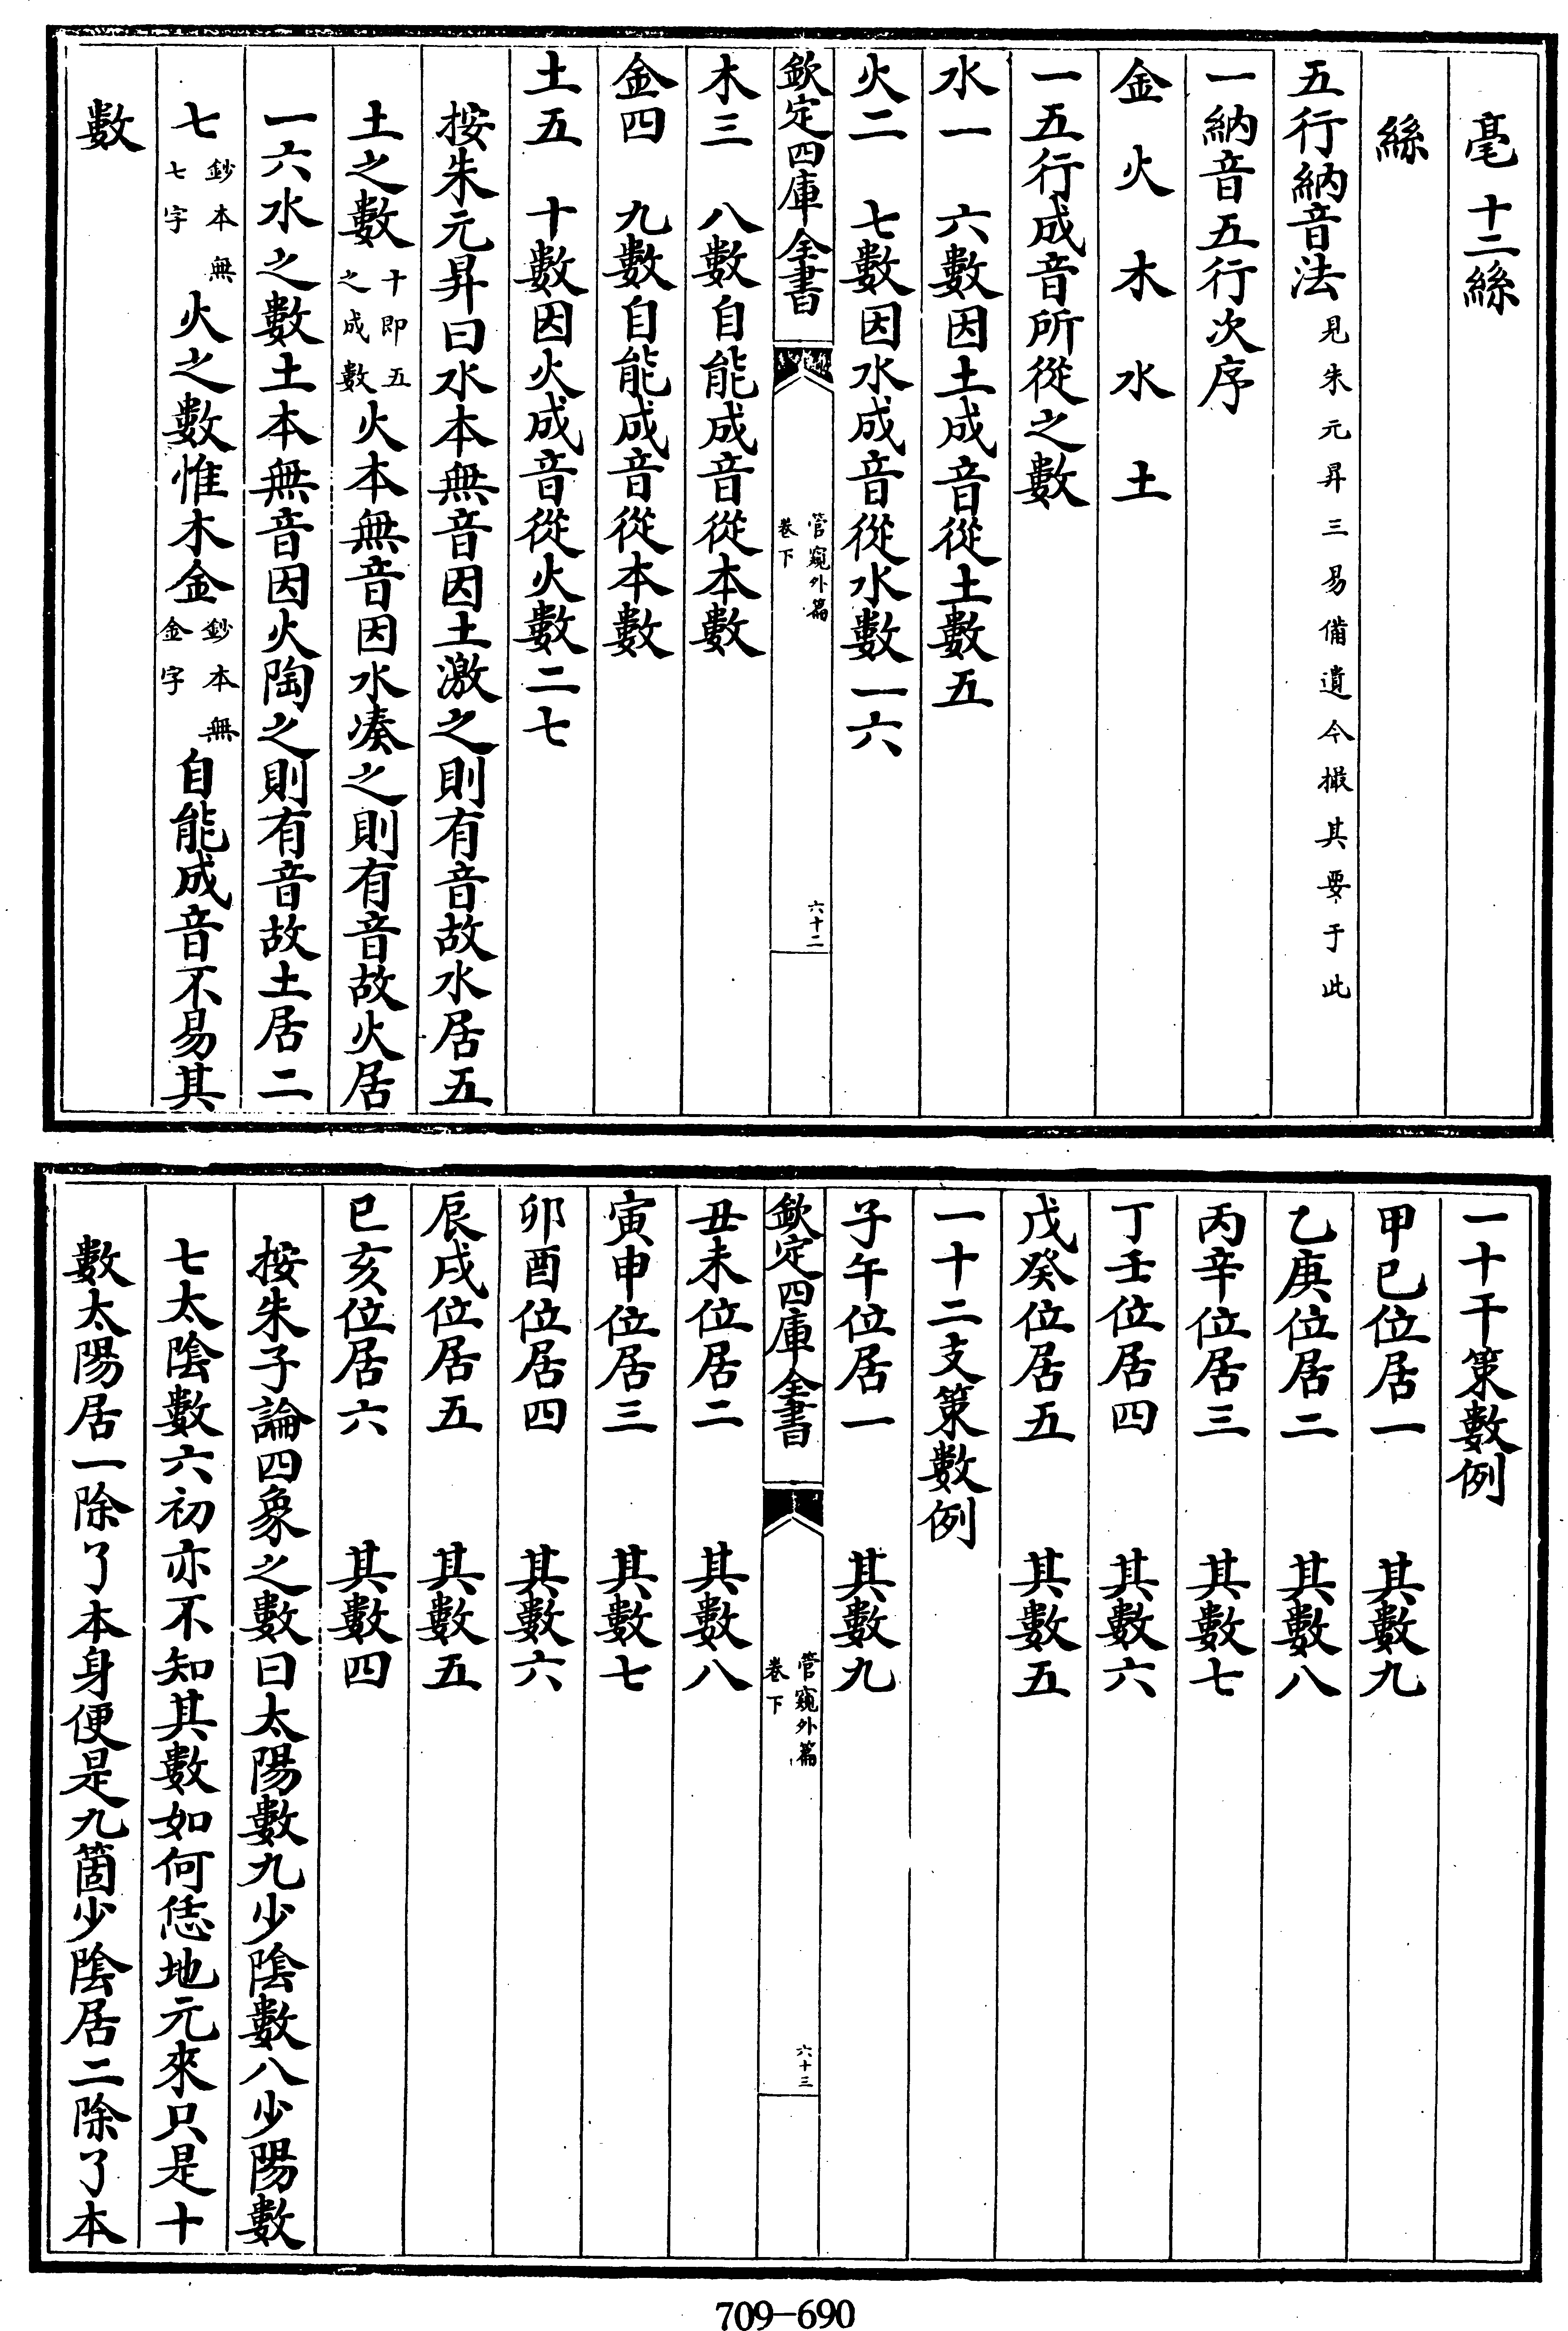 毫 十二絲
絲
五行納音法見朱元昇三易備遺今撮其要于此
一納音五行次序
金 火 木 水 土
一五行成音所從之數
水一 六數因土成音從土數五
火二 七數因水成音從水數一六
欽定四庫全書 管窺外篇 卷下 六十二
木三 八數自能成音從本數
金四 九數自能成音從本數
土五 十數因火成音從火數二七
按朱元昇曰水本無音因土激之則有音故水居五
土之數十即五之成數火本無音因水湊之則有音故火居
一六水之數土本無音因火陶之則有音故土居二
七鈔本無七字火之數惟木金鈔本無金字自能成音不易其
數
一十干策數例
甲已位居一 其數九
乙庚位居二 其數八
丙辛位居三 其數七
丁壬位居四 其數六
戊癸位居五 其數五
一十二支策數例
子午位居一 其數九
欽定四庫全書 管窺外篇 卷下 六十三
丑未位居二 其數八
寅申位居三 其數七
卯酉位居四 其數六
辰戌位居五 其數五
已亥位居六 其數四
按朱子論四象之數曰太陽數九少陰數八少陽數
七太陰數六初亦不知其數如何恁地元來只是十
數太陽居一除了本身便是九箇少陰居二除了本
709-690